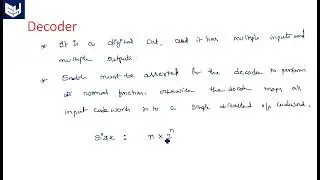 Decoder
* It is a digital Ckt, and it has multiple inputs and
multiple outputs.
* Enable must be asserted for the decoder to perform
its normal function, otherwise the decoder maps all
input code words in to a single disabled o/p codeword.
Size : n × 2ⁿ